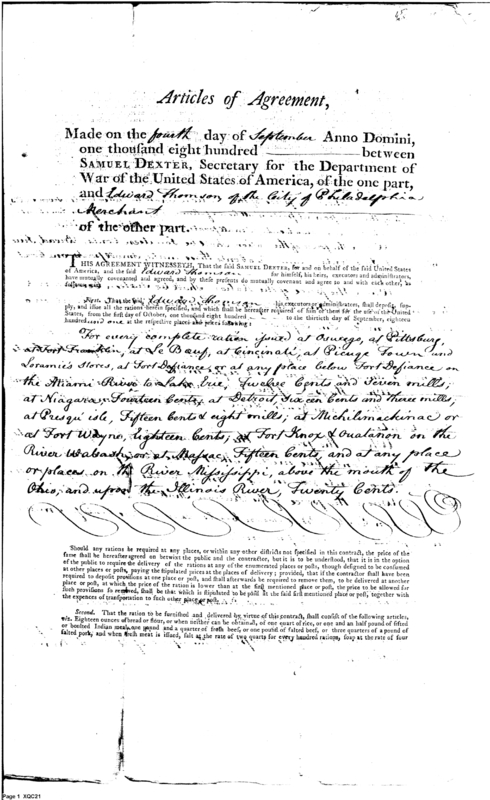 Articles of Agreement,
Made on the fourth day of September Anno Domini,
one thousand eight hundred between
SAMUEL DEXTER, Secretary for the Department of
War of the United States of America, of the one part,
and Edward Thomson of the City of Philadelphia
Merchant
of the other part.
THIS AGREEMENT WITNESSETH, That the said SAMUEL DEXTER, for and on behalf of the said United States
of America, and the said Edward Thomson for himself, his heirs, executors and administrators,
have mutually covenanted and agreed, and by these presents do mutually covenant and agree to and with each other, as
follows viz.
First. That the said Edward Thomson his executors or administrators, shall deposit, sup-
ply, and issue all the rations herein specified, and which shall be hereafter required of him or them for the use of the United
States, from the first day of October, one thousand eight hundred to the thirtieth day of September, eighteen
hundred and one at the respective places and prices following:
For every complete ration issued at Oswego, at Pittsburg,
at Fort Franklin, at Le Bœuf, at Cincinati, at Picque Town and
Loramies Stores, at Fort Defiance, or at any place below Fort Defiance on
the Miami River to Lake Erie, Twelve Cents and Seven mills;
at Niagara, Fourteen Cents; at Detroit, Sixteen Cents and three mills;
at Presqu' isle, Fifteen Cents & eight mills; at Michilimackinac or
at Fort Wayne, Eighteen Cents; at Fort Knox & Ouatanon on the
River Wabash, or at Massac, Fifteen Cents, and at any place
or places on the River Mississippi, above the mouth of the
Ohio, and upon the Illinois River, Twenty Cents.
Should any rations be required at any places, or within any other districts not specified in this contract, the price of the
same shall be hereafter agreed on betwixt the public and the contractor, but it is to be understood, that it is in the option
of the public to require the delivery of the rations at any of the enumerated places or posts, though designed to be consumed
at other places or posts, paying the stipulated prices at the places of delivery; provided, that if the contractor shall have been
required to deposit provisions at one place or post, and shall afterwards be required to remove them, to be delivered at another
place or post, at which the price of the ration is lower than at the first mentioned place or post, the price to be allowed for
such provisions so removed, shall be that which is stipulated to be paid at the said first mentioned place or post, together with
the expences of transportation to such other place or post.
Second. That the ration to be furnished and delivered by virtue of this contract, shall consist of the following articles,
viz. Eighteen ounces of bread or flour, or when neither can be obtained, of one quart of rice, or one and an half pound of sifted
or boulted Indian meal, one pound and a quarter of fresh beef, or one pound of salted beef, or three quarters of a pound of
salted pork, and when fresh meat is issued, salt at the rate of two quarts for every hundred rations, soap at the rate of four
Page 1 XQC21